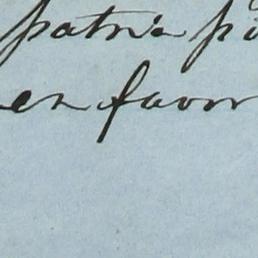 patria
en favor